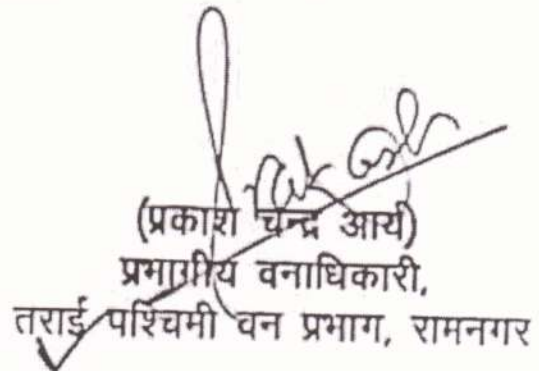 (प्रकाश चन्द्र आर्य)
प्रभागीय वनाधिकारी,
तराई पश्चिमी वन प्रभाग, रामनगर